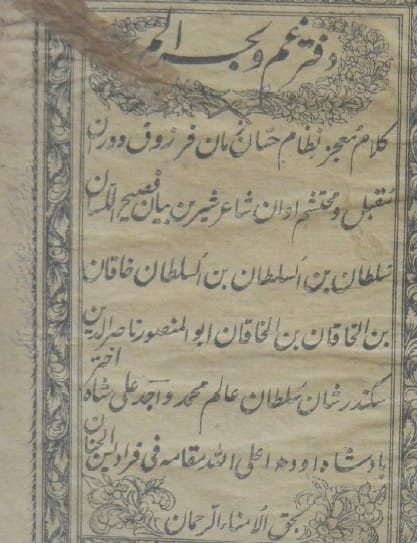 دفتر غم و بحر الم
کلام معجز نظام حسان زمان فرزوق دوران
مقبل و محتشم اوان شاعر شیرین بیان فصیح اللسان
سلطان بن السلطان بن السلطان خاقان
بن الخاقان بن الخاقان ابو المنصور ناصر الدین
سکندر شان سلطان عالم محمد واجد علی شاه اختر
بادشاه اوده اعلی الله مقامه فی فرادیس الجنان
بحق الامناء الرحمان